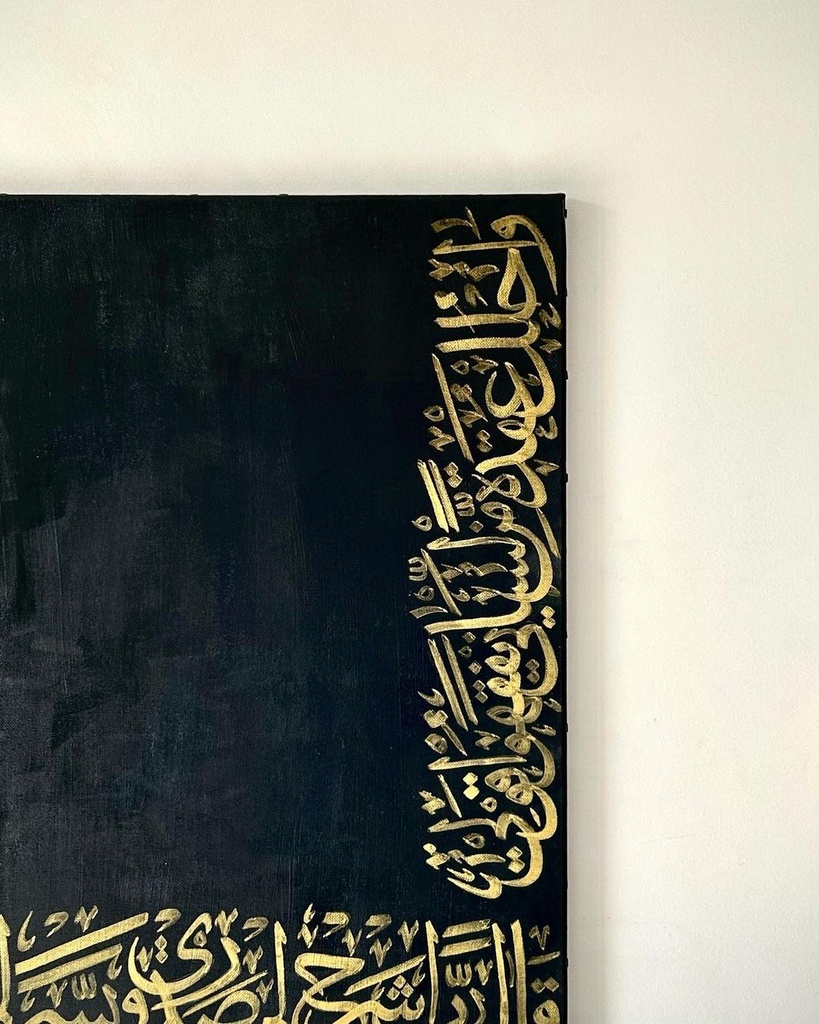 قَالَ رَبِّ اشْرَحْ لِي صَدْرِي وَيَسِّرْ
وَاحْلُلْ عُقْدَةً مِّن لِّسَانِي يَفْقَهُوا قَوْلِي